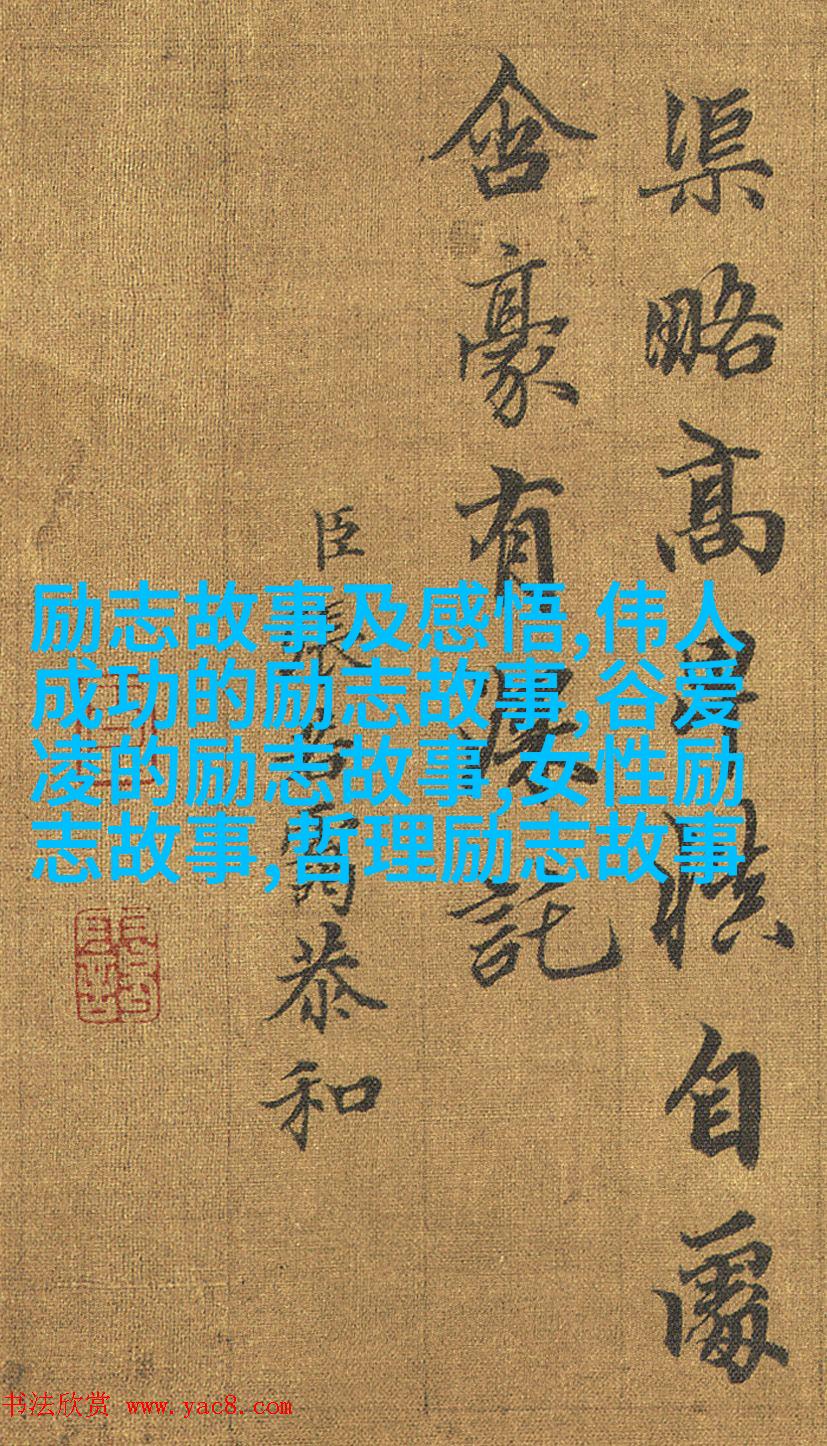 渠略高慎自處
含豪有深託
臣張若靄恭和
励志故事及感悟,伟人
成功的励志故事,谷爱
凌的励志故事,女性励
志故事,哲理励志故事
书法欣赏 www.yac8.com